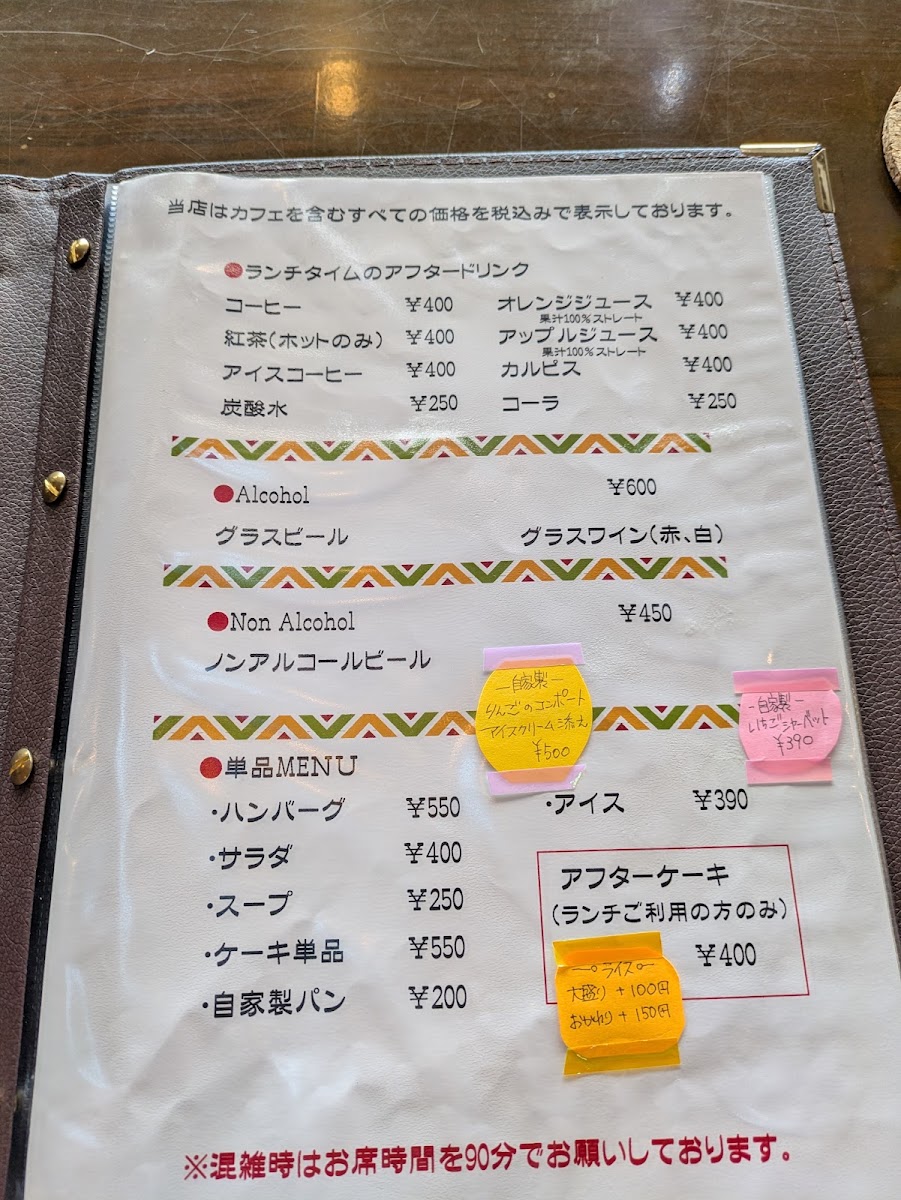 当店はカフェを含むすべての価格を税込みで表示しております。
●ランチタイムのアフタードリンク
コーヒー ￥400 オレンジジュース ￥400
果汁100％ストレート
紅茶(ホットのみ) ￥400 アップルジュース ￥400
果汁100％ストレート
アイスコーヒー ￥400 カルピス ￥400
炭酸水 ￥250 コーラ ￥250
●Alcohol ￥600
グラスビール グラスワイン(赤、白)
●Non Alcohol ￥450
ノンアルコールビール
－自家製－
りんごのコンポート
アイスクリーム添え
￥500
－自家製－
いちごシャーベット
￥390
●単品MENU
・ハンバーグ ￥550 ・アイス ￥390
・サラダ ￥400
・スープ ￥250
・ケーキ単品 ￥550
・自家製パン ￥200
アフターケーキ
(ランチご利用の方のみ)
￥400
ライス
大盛り＋100円
おかわり＋150円
※混雑時はお席時間を90分でお願いしております。